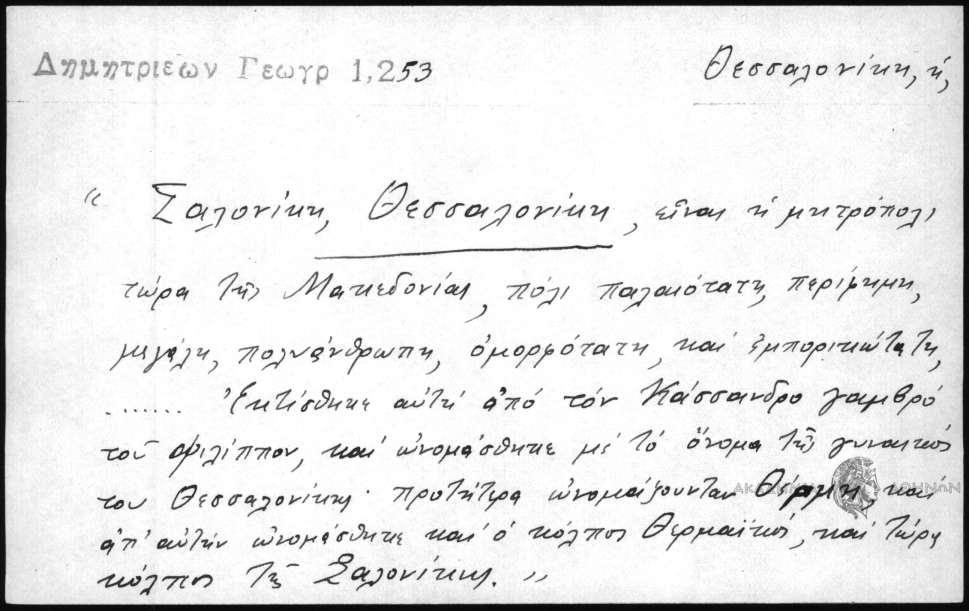 Δημητριέων Γεωγρ 1,253
Θεσσαλονίκη, ἡ,
“ Σαλονίκη, Θεσσαλονίκη, εἶναι ἡ μητρόπολι
τώρα τῆς Μακεδονίας, πόλι παλαιότατη, περίφημη,
μεγάλη, πολυάνθρωπη, ὀμορφότατη, καὶ ἐμπορικώτατη,
....... Ἐκτίσθηκε αὐτὴ ἀπό τόν Κάσσανδρο γαμβρό
τοῦ Φιλίππου, καὶ ὠνομάσθηκε μὲ τὸ ὄνομα τῆς γυναικός
του Θεσσαλονίκης· προτήτερα ὠνομάζουνταν Θέρμη καὶ
ΑΚΑΔΗΜΙΑ ΑΘΗΝΩΝ
ἀπ' αὐτήν ὠνομάσθηκε καὶ ὁ κόλπος Θερμαϊκός, καὶ τώρα
κόλπος τῆς Σαλονίκης. ”